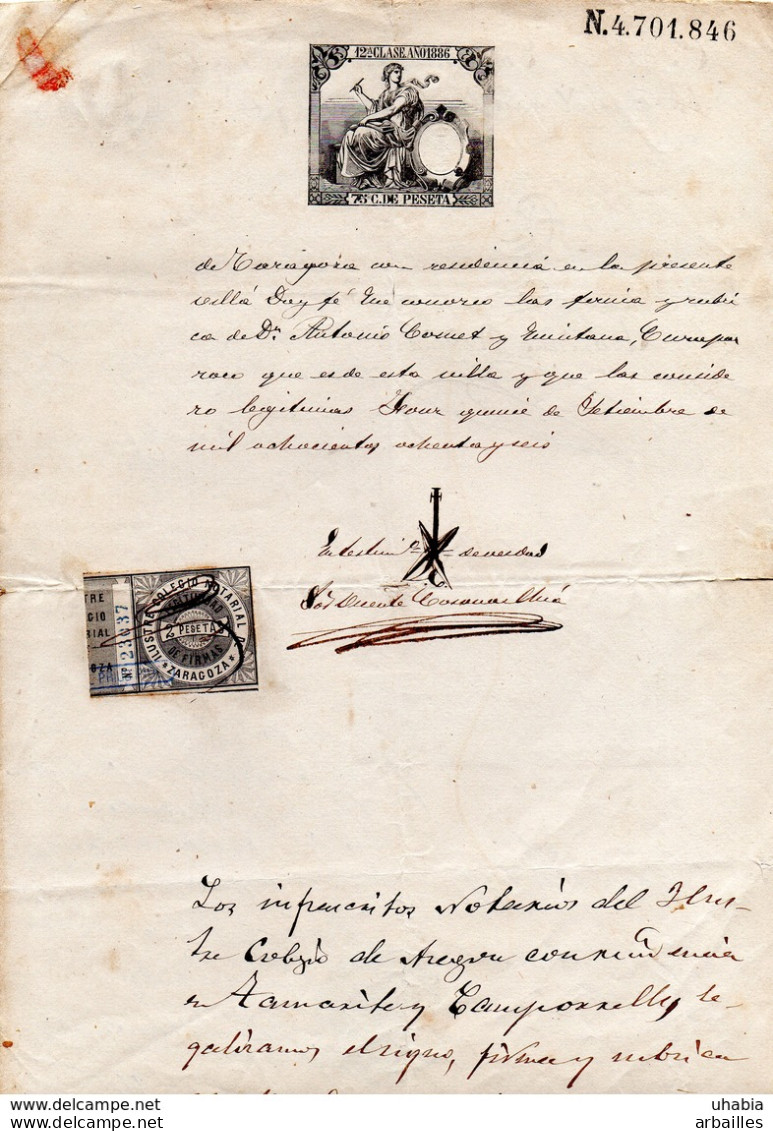 N.4.701.846
12ª CLASE. AÑO 1886
75 C. DE PESETA
de Zaragoza con residencia en la presente
villa Doy fé Que conozco las firma y rubri
ca de Dn. Antonio Comet y Quintana, Cura par
roco que es de esta villa y que las conside
ro legitimas Fonz quince de Setiembre de
mil ochocientos ochenta y seis
En testimº de verdad
Vicente
ILUSTRE COLEGIO NOTARIAL DE
ZARAGOZA
LEGITIMIDAD
2 PESETAS
DE FIRMAS
TRE
GIO
RIAL
OZA
Nº 23637
Los infrascritos Notarios del Ilus-
tre Colegio de Aragon con residencia
en Tamarite y Camporrells, le-
galizamos el signo, firma y rubrica
uhabia
arbailles